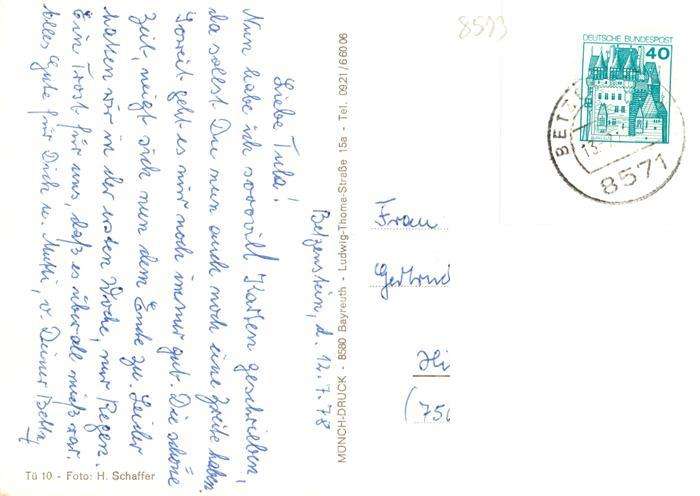 Betzenstein, d. 12.7.78
Liebe Tula!
Nun habe ich soooviel Karten geschrieben,
da sollst Du nun auch noch eine zweite haben.
Soweit geht es mir noch immer gut. Die schöne
Zeit, neigt sich nun dem Ende zu. Leider
hatten wir in der ersten Woche, nur Regen.
Ein Trost für uns, daß es überall mieß war.
Alles Gute für Dich u. Mutti, v. Deiner Betty
Tü 10 - Foto: H. Schaffer
MÜNCH-DRUCK - 8580 Bayreuth - Ludwig-Thoma-Straße 15a - Tel. 0921/66006
8573
DEUTSCHE BUNDESPOST
40
8571
Frau
Gertrud
Hi
(75